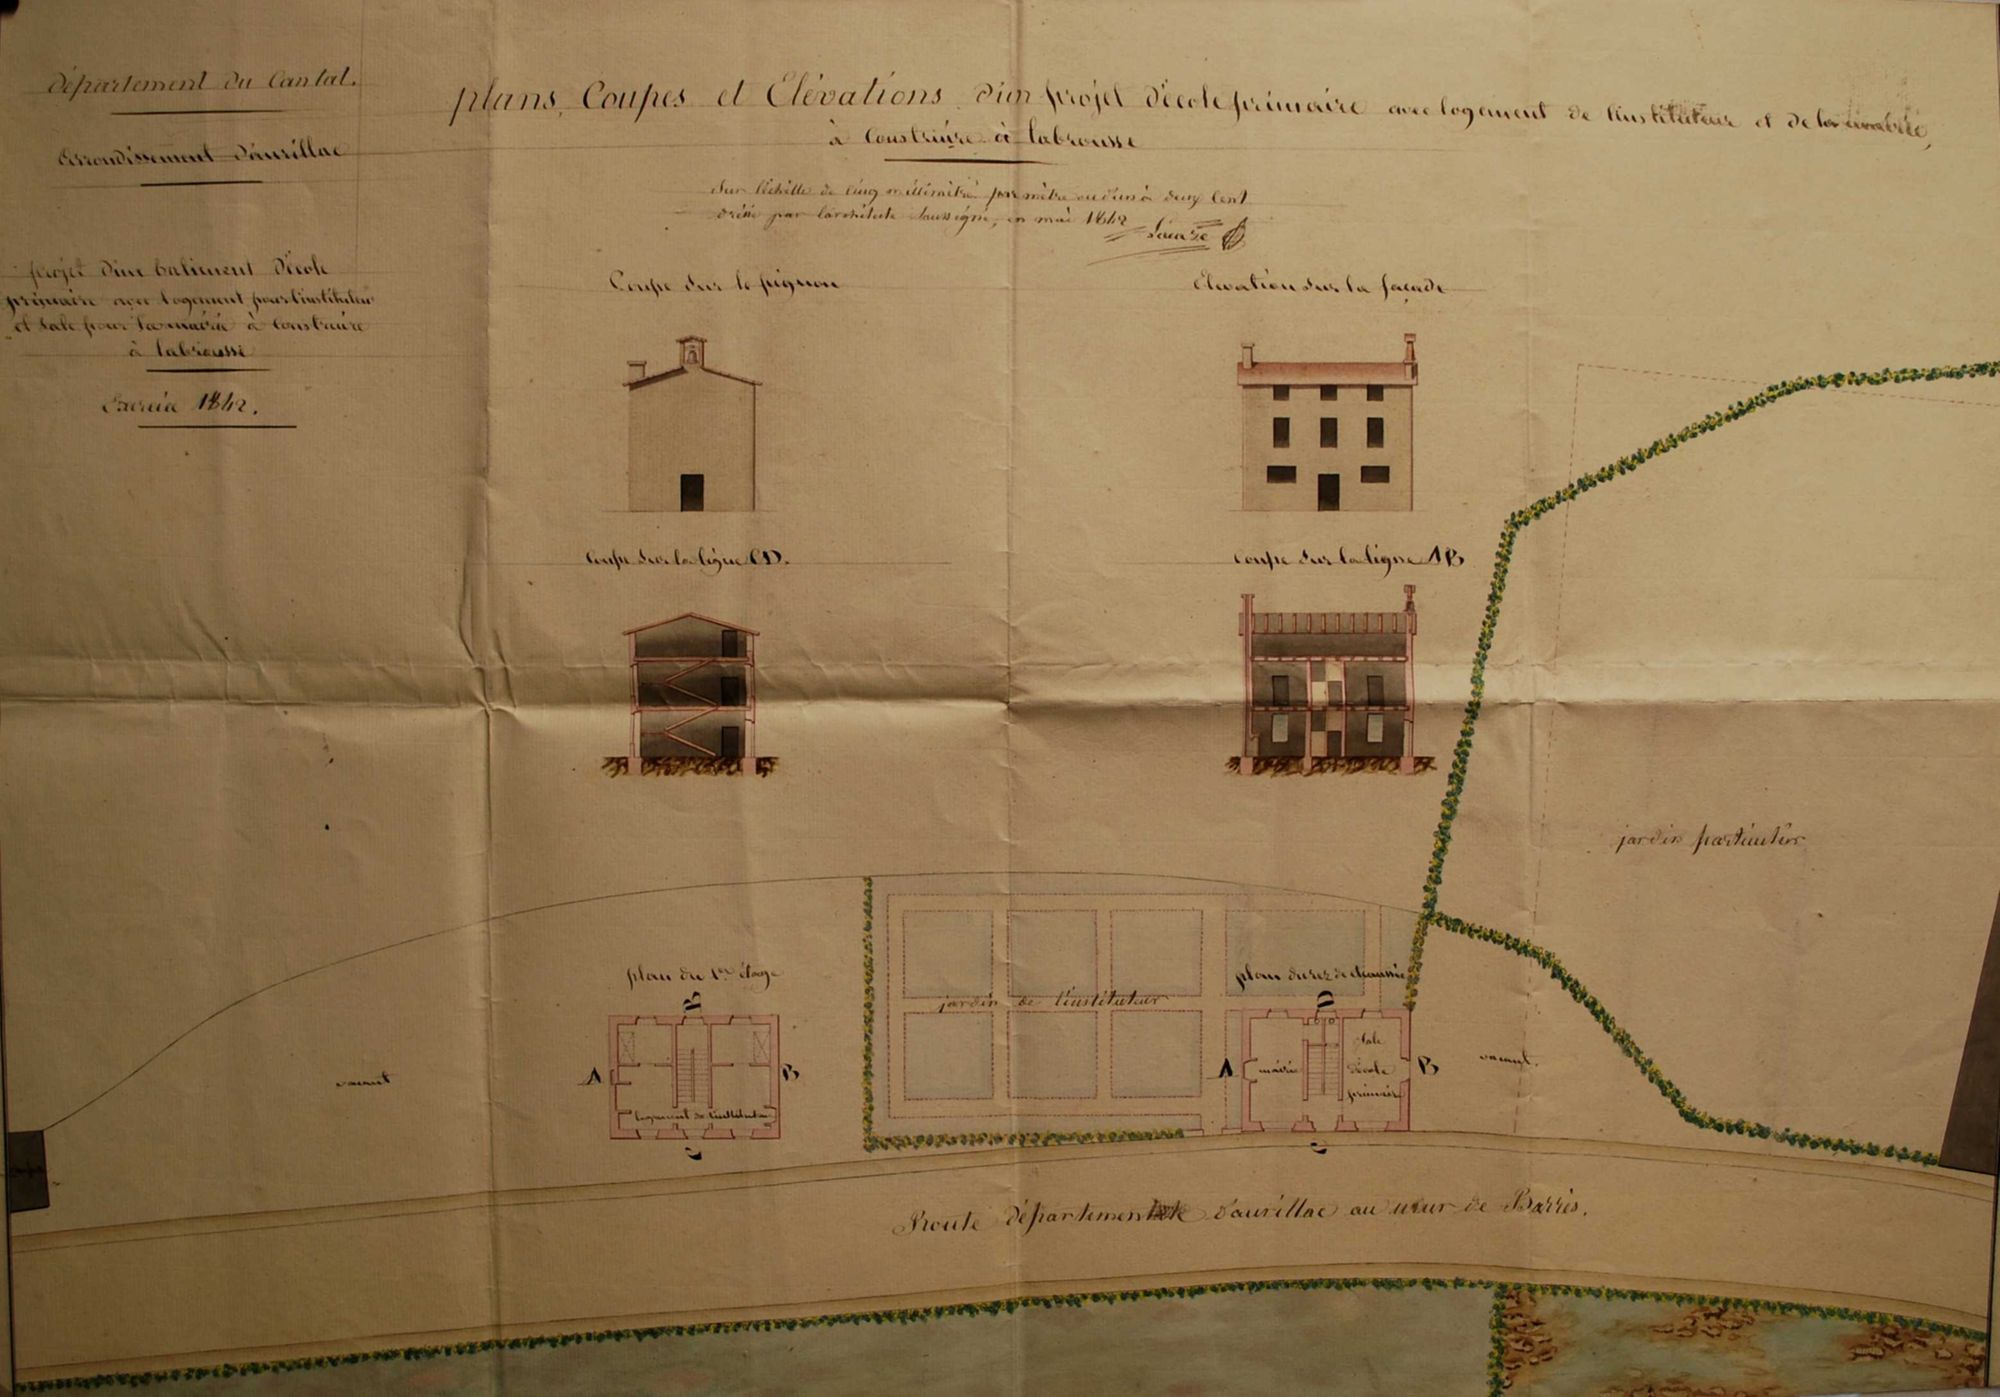 département du Cantal.
arrondissement d'aurillac
projet d'un batiment d'école
primaire avec logement pour l'instituteur
et sale pour la mairie à construire
à labrousse
1842.
plans, Coupes et Elévations d'un projet d'école primaire avec logement de l'instituteur et de la mairie,
à Construire à labrousse
Sur l'échelle de cinq millimètre par mètre ou d'un à deux cent
dréssé par l'architecte soussigné, en mai 1842
Coupe sur le pignon
Elevation sur la façade
coupe sur la ligne CD.
coupe sur la ligne AB
jardin particulier
plan du 1er étage
B
A
B
logement de l'instituteur
C
jardin de l'instituteur
plan du rez de chaussée
D
A
mairie
sale
d'école
primaire
B
C
vacant
vacant.
Route départementale d'aurillac au mur de Barrès.